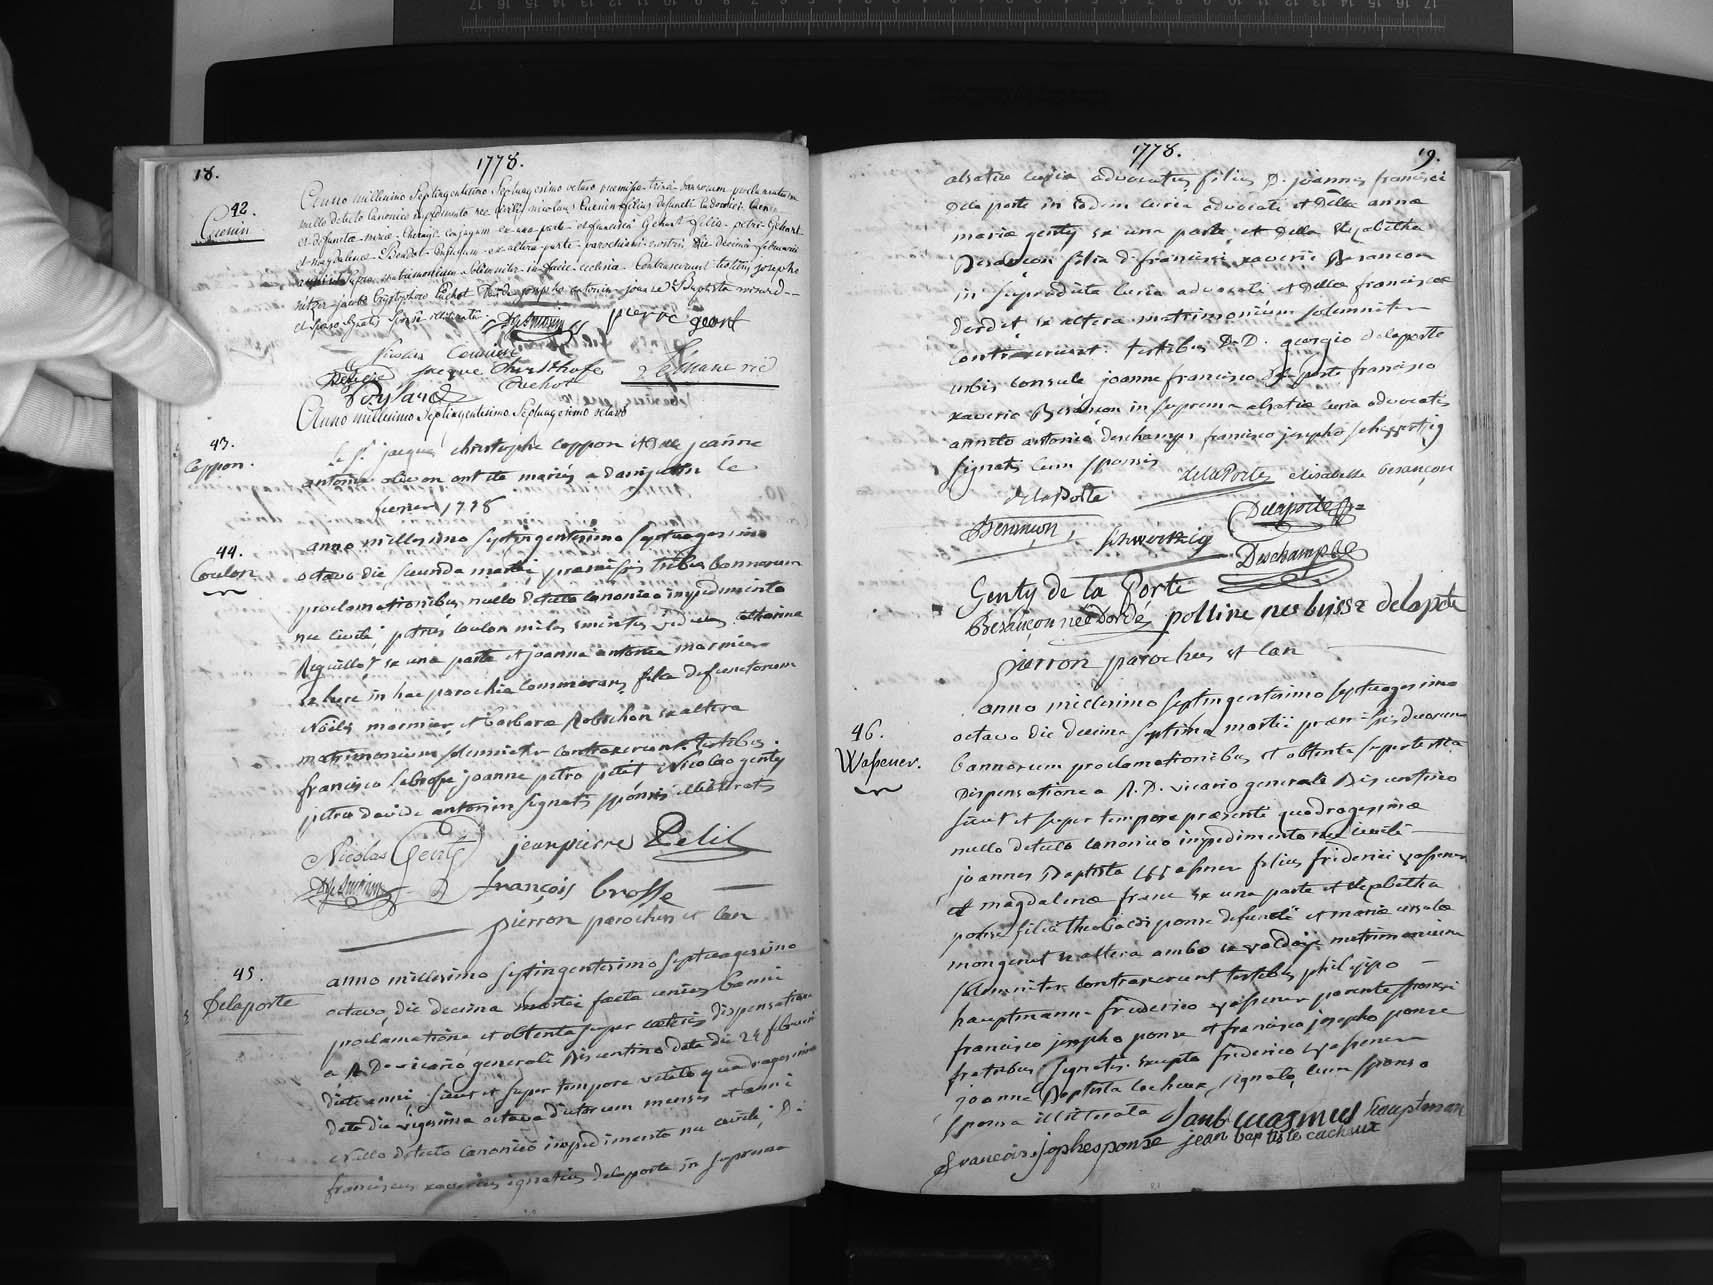 18.
1778.
42.
Cuenin
Anno millesimo Septingentesimo Septuagesimo octavo praemissa trina bannorum proclamatione
nullo detecto Canonico impedimento nec civili nicolaus Cuenin filius defuncti ludovici Cuenin
et defunctae mariae conjugum ex una parte et francisca Gehant filia petri Gehant
et magdalenae conjugum ex altera parte parochiani nostri die decima februarii
anni matrimonium solemniter in facie ecclesiae Contraxerunt testibus josepho
jacobo Christophoro Cuchot josepho antonin joanne Baptista
et sponso signatis sponsa illiterata.
pierre geant
Nicolas
jacque Christhofe
Cuchot
Anno millesimo Septingentesimo Septuagesimo octavo
43.
Ceppon.
le Sr. jacques christophe Ceppon et jeanne
antonia ont été mariés a le
fevrier 1778
44.
Coulon
anno millesimo septingentesimo septuagesimo
octavo die secunda martii praemissis tribus bannorum
proclamationibus nullo detecto canonico impedimento
nec civili petrus Coulon miles emeritus viduus catharinae
ex una parte et joanna antonia marmier
ex in hac parochia commorans filia defunctorum
Noelis marmier et barbarae Robichon ex altera
matrimonium solemniter contraxerunt testibus
francisco joanne petro petit Nicolao genty
petro davide antonin signatis sponsis illiteratis
Nicolas Genty jeanpierre Petit
françois brosse
pierron parochus et can
45.
Delaporte
anno millesimo septingentesimo septuagesimo
octavo die decima martii facta unius banni
proclamatione et obtenta super caeteris dispensatione
a R. D. vicario generali Bisuntino data die 24 februarii
dicti anni sicut et super tempore vetito quadragesimae
data die vigesima octava dictorum mensis et anni
nullo detecto canonico impedimento nec civili, D.
franciscus xaverius ignatius delaporte in suprema
1778.
19.
alsatiae curia advocatus filius D. joannis francisci
Dela porte in eadem curia advocati et Dellae anna
mariae genty ex una parte et Della Elizabetha
Besançon filia D. francisci xaverii Besançon
in supradicta curia advocati et Dellae franciscae
dordet ex altera matrimonium solemniter
contraxerunt. testibus D.D. georgio delaporte
urbis consule joanne francisco delaporte francisco
xaverio Besançon in suprema alsatiae curia advocatis
anneto antonio deschamps francisco josepho schwertzig
signatis cum sponsis
delaPorte elisabethe besançon
delaPorte
Delaporte
Besançon, schwertzig
Deschamps
Genty de la Porte
Besançon née dordé pollive nes buisse delaporte
pierron parochus et can
46.
Wasener.
anno millesimo septingentesimo septuagesimo
octavo die decima septima martii praemissis duorum
bannorum proclamationibus et obtenta super tertia
Dispensatione a R. D. vicario generali Bisuntino
sicut et super tempore praesenti quadragesimae
nullo detecto canonico impedimento nec civili
joannes Baptista Wasner filius friderici wasener
et magdalenae frene ex una parte et Elizabetha
ponse filia theobaldi ponse defuncti et mariae ursulae
mongenet ex altera ambo ex valdoije matrimonium
solemniter contraxerunt testibus philippo
hauptmann friderico wasener parente sponsi
francisco josepho ponse et francisco josepho ponse
fratribus signatis excepto friderico wasener
joanne Baptista cacheux, signato, cum sponso
sponsa illiterata
hauptman
francois josephe ponse jean baptiste cacheux